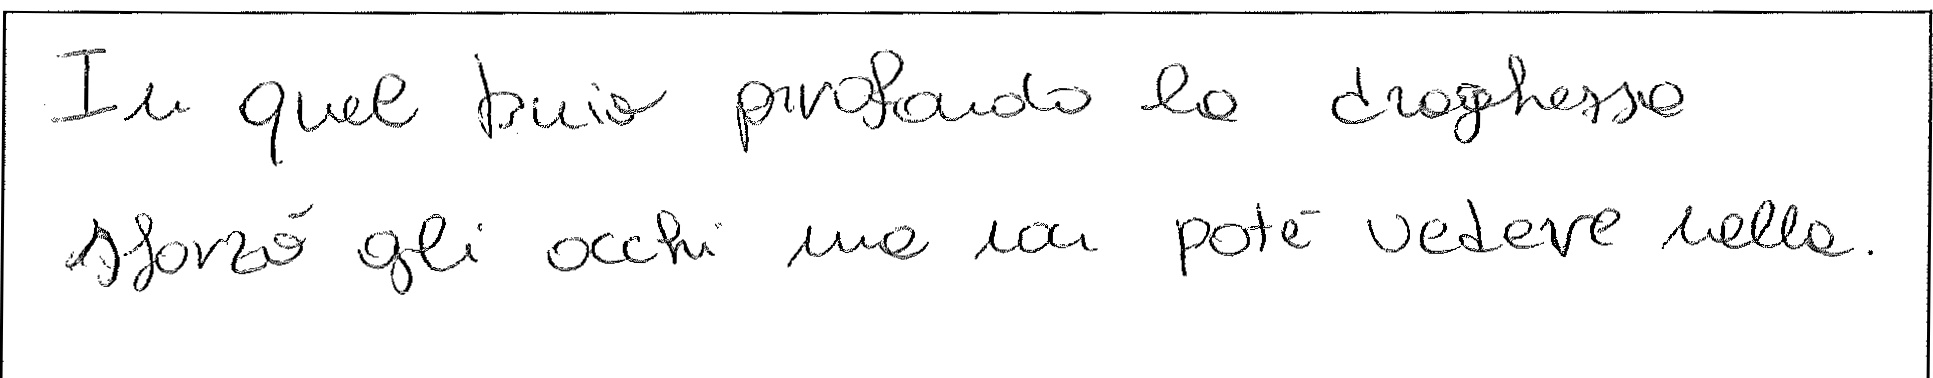 In quel buio profondo la draghessa
sforzò gli occhi ma non poté vedere nella.